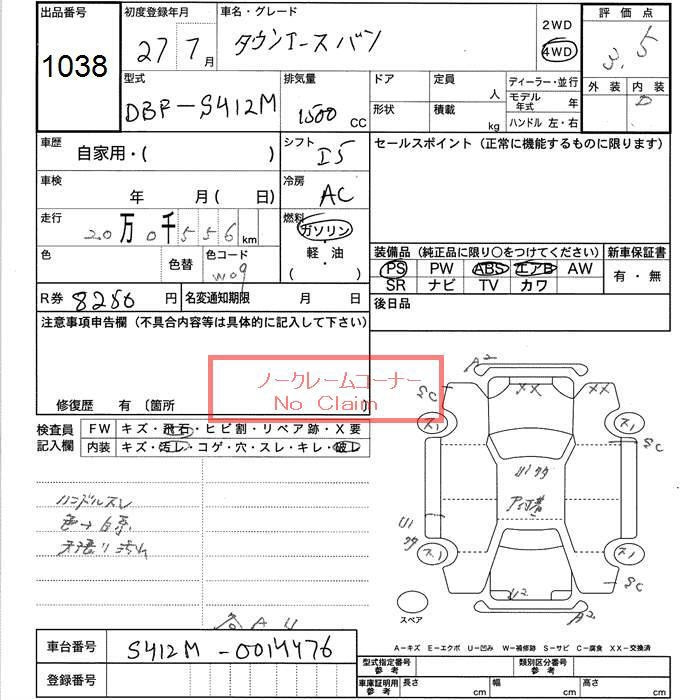 出品番号
1038
初度登録年月
27 7月
車名・グレード
タウンエースバン
2WD
4WD
評価点
3.5
外装 内装
D
型式
DBF-S412M
排気量
1500 CC
ドア
形状
定員
人
積載
kg
ディーラー・並行
モデル年式 年
ハンドル 左・右
車歴
自家用・( )
シフト
I5
セールスポイント(正常に機能するものに限ります)
車検
年 月( 日)
冷房
AC
走行
20万0千556km
燃料
ガソリン
軽・油
( )
色
色替
色コード
W09
装備品(純正品に限り〇をつけてください)
新車保証書
PS PW ABS エアB AW
SR ナビ TV カワ
有・無
R券 8250円
名変通知期限 月 日
後日品
注意事項申告欄(不具合内容等は具体的に記入して下さい)
ノークレームコーナー
No Claim
修復歴 有〔箇所
検査員記入欄
FW キズ・飛石・ヒビ割・リペア跡・X要
内装 キズ・汚レ・コゲ・穴・スレ・キレ・破レ
ハンドルスレ
色→白系
天張り汚れ
A2
SC
XX
XX
ス1
ス1
SC
U1
U1
ス1
ス1
U2
SC
A2
スペア
A U
A-キズ E-エクボ U-凹み W-補修跡 S-サビ C-腐食 XX-交換済
車台番号
S412M-0014476
登録番号
型式指定番号参考
類別区分番号参考
車庫証明用参考
長さ cm
幅 cm
高さ cm